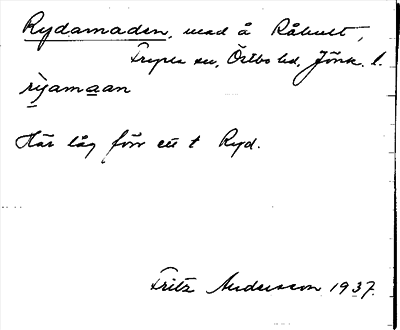 Rydamaden, mad å Råhult,
Fryele sn, Östbo hd, Jönk. l.
rỳamaan
Här låg förr ett t Ryd.
Fritz Andersson 1937.